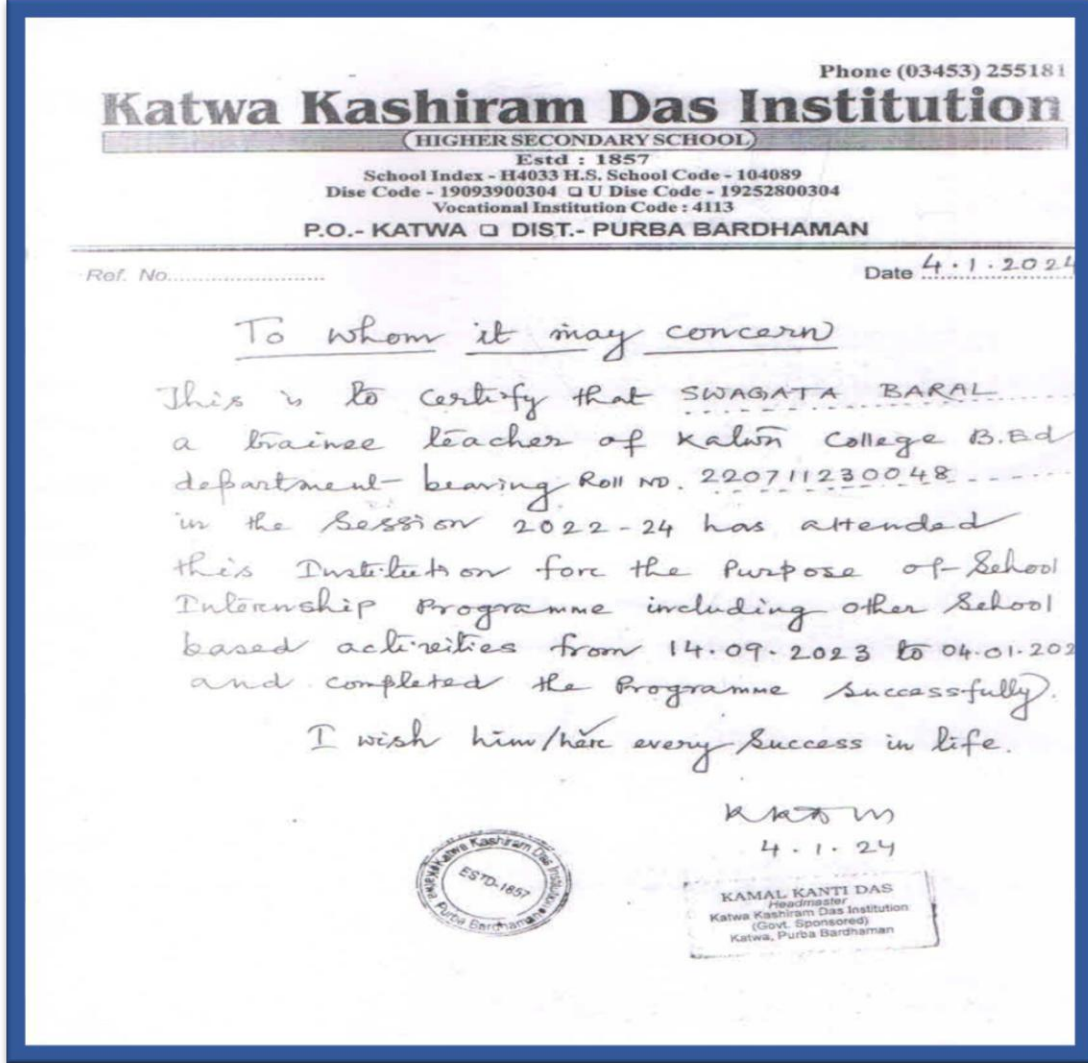 Phone (03453) 255181
Katwa Kashiram Das Institution
(HIGHER SECONDARY SCHOOL)
Estd : 1857
School Index - H4033 H.S. School Code - 104089
Dise Code - 19093900304 ❑ U Dise Code - 19252800304
Vocational Institution Code : 4113
P.O.- KATWA ❑ DIST.- PURBA BARDHAMAN
Ref. No.......................... Date 4.1.2024
To whom it may concern
This is to certify that SWAGATA BARAL
a trainee teacher of Katwa College B.Ed
department bearing Roll No. 220711230048
in the Session 2022-24 has attended
this Institution for the Purpose of School
Internship Programme including other School
based activities from 14.09.2023 to 04.01.202
and completed the Programme Successfully.
I wish him/her every Success in life.
4.1.24
Katwa Kashiram Das Institution
ESTD-1857
Purba Bardhaman
KAMAL KANTI DAS
Headmaster
Katwa Kashiram Das Institution
(Govt. Sponsored)
Katwa, Purba Bardhaman